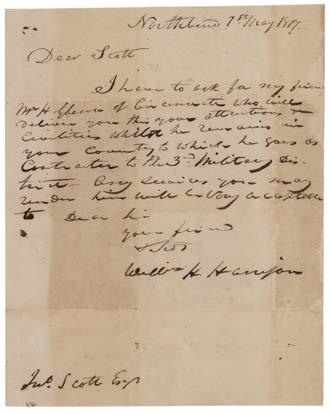 Northbend 7th May 1817.
Dear Scott
I have to ask for my friend
Mr H. Glenn of Cincinnati who will
deliver you this your attentions &
Civilities whilst he remains in
your Country to which he goes as
Contractor to the 3d Military Dis-
trict. Any services you may
render him will be very acceptable
to Dear Sir
your friend
Willm H. Harrison
Jno. Scott Esqr